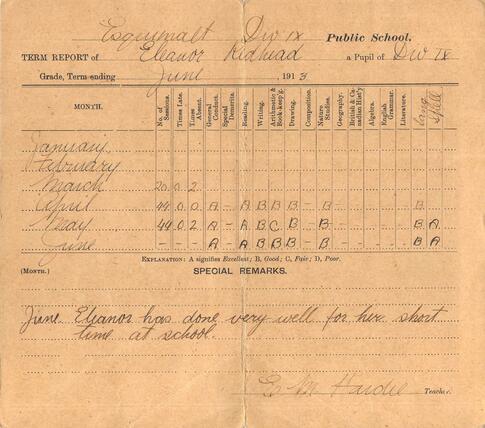 Esquimalt Div IX Public School.
TERM REPORT of Eleanor Redhead a Pupil of Div IX
Grade, Term ending June , 1913
MONTH. No. of Sessions. Times Late. Times Absent. General Conduct. Special Demerits. Reading. Writing. Arithmetic & Book-keep'g. Drawing. Composition. Nature Studies. Geography. British & Canadian Hist'y Algebra. English Grammar. Literature. Lang Spell
January
February
March 20 0 2
April 44 0 0 A - A B B B - B - - - - B
May 44 0 2 A - A B C B - B - - - - B A
June - - - A - A B B B - B - - - - B A
EXPLANATION: A signifies Excellent; B, Good; C, Fair; D, Poor.
(Month.) SPECIAL REMARKS.
June Eleanor has done very well for her short
time at school.
M Hardie Teacher.